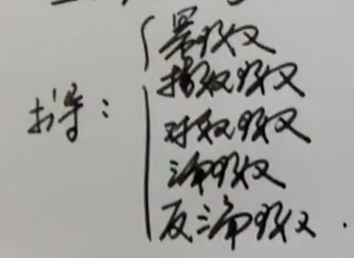 求导：
幂函数
指数函数
对数函数
三角函数
反三角函数.